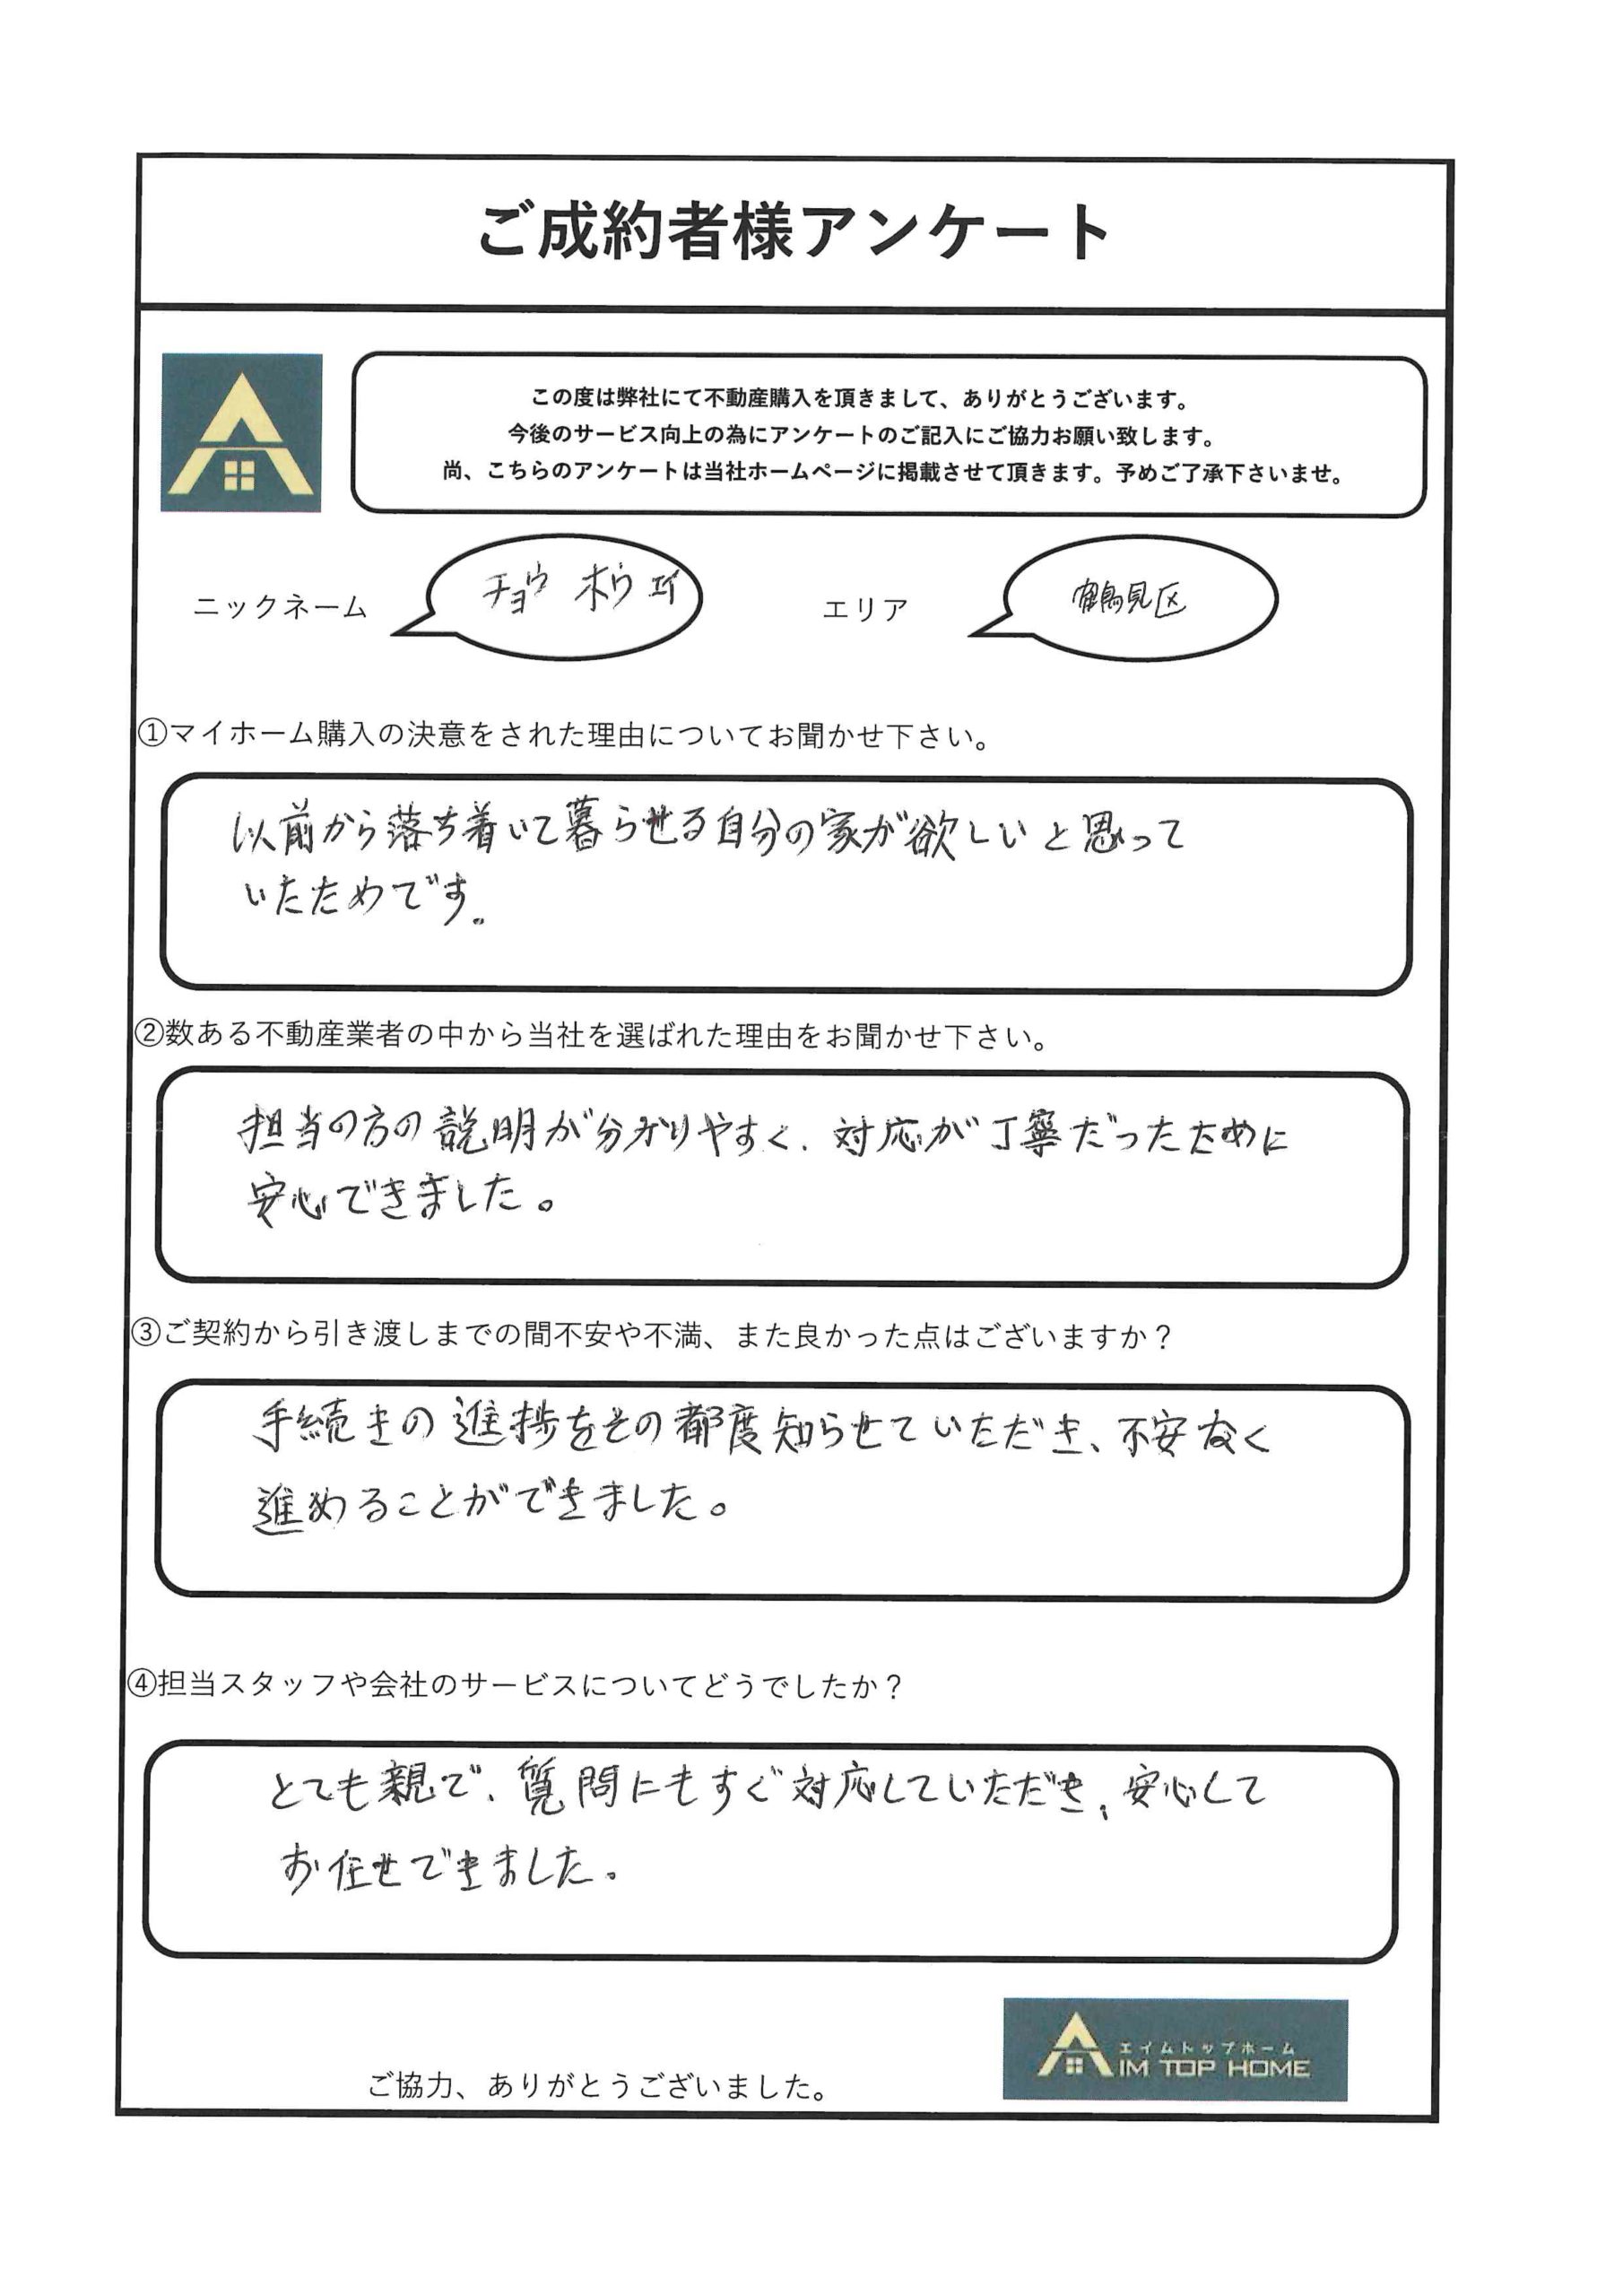 ご成約者様アンケート
この度は弊社にて不動産購入を頂きまして、ありがとうございます。
今後のサービス向上の為にアンケートのご記入にご協力お願い致します。
尚、こちらのアンケートは当社ホームページに掲載させて頂きます。予めご了承下さいませ。
ニックネーム
チョウ ホウ エイ
エリア
鶴見区
①マイホーム購入の決意をされた理由についてお聞かせ下さい。
以前から落ち着いて暮らせる自分の家が欲しいと思って
いたためです。
②数ある不動産業者の中から当社を選ばれた理由をお聞かせ下さい。
担当の方の説明が分かりやすく、対応が丁寧だったために
安心できました。
③ご契約から引き渡しまでの間不安や不満、また良かった点はございますか？
手続きの進捗をその都度知らせていただき、不安なく
進めることができました。
④担当スタッフや会社のサービスについてどうでしたか？
とても親で、質問にもすぐ対応していただき、安心して
お任せできました。
エイムトップホーム
AIM TOP HOME
ご協力、ありがとうございました。